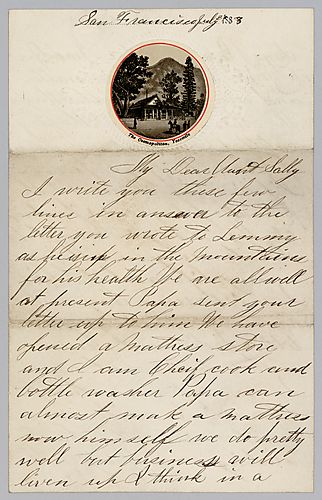 San Francisco July 1883
The Cosmopolitan, Yosemite
My Dear Aunt Sally
I write you these few
lines in answer to the
letter you wrote to Lemmy
as he is up in the mountains
for his health We are all well
at present Papa sent your
letter up to him We have
opened a mattress store
and I am Cheif cook and
bottle washer Papa can
almost make a mattress
now himself we do pretty
well but business will
liven up I think in a